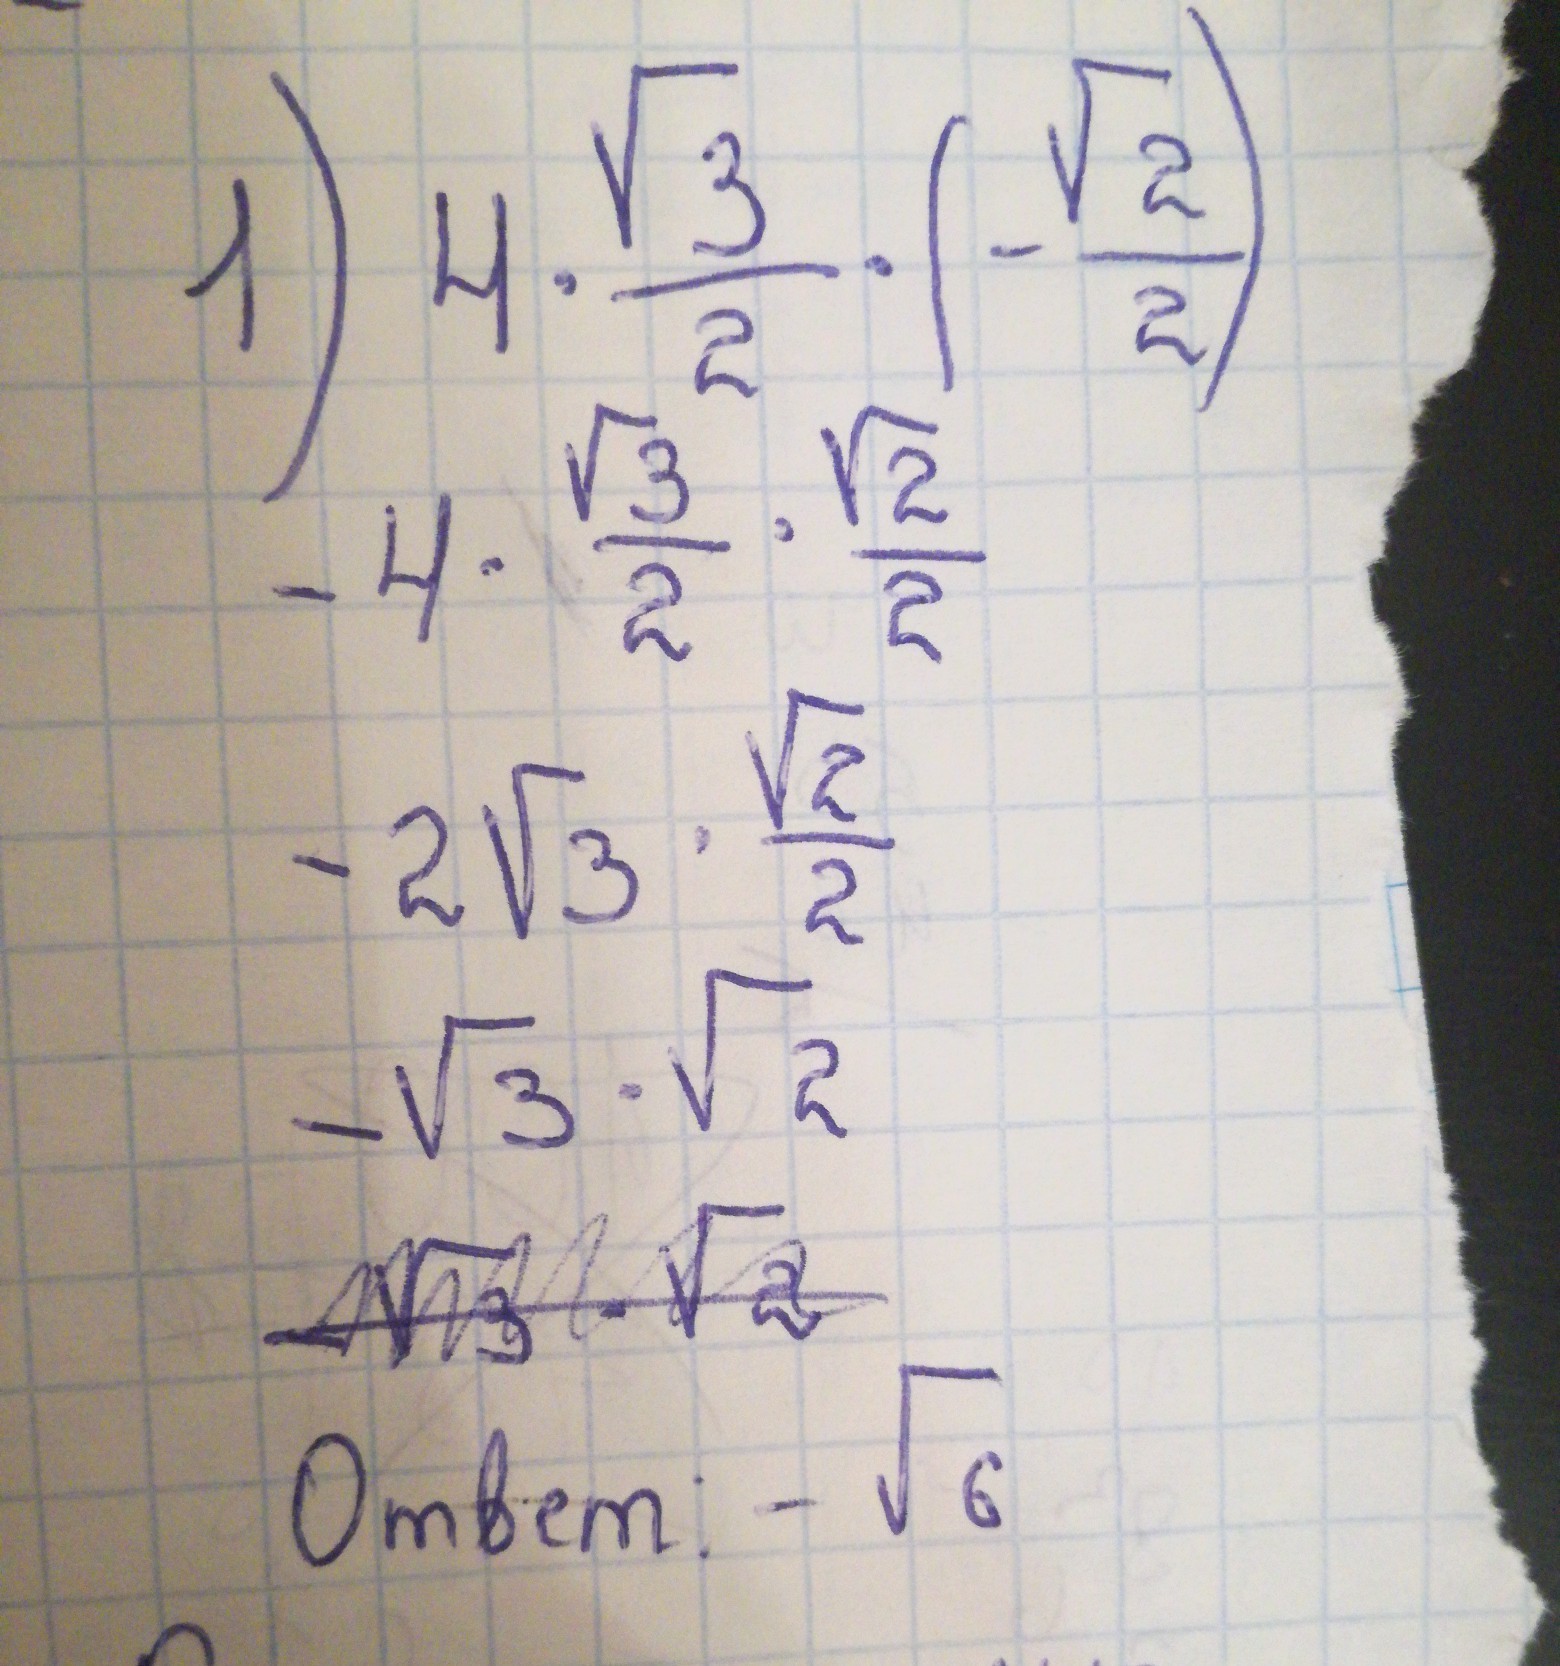 1) 4 · √3/2 · (- √2/2)
- 4 · √3/2 · √2/2
- 2√3 · √2/2
- √3 · √2
- √3 · √2
Ответ: - √6